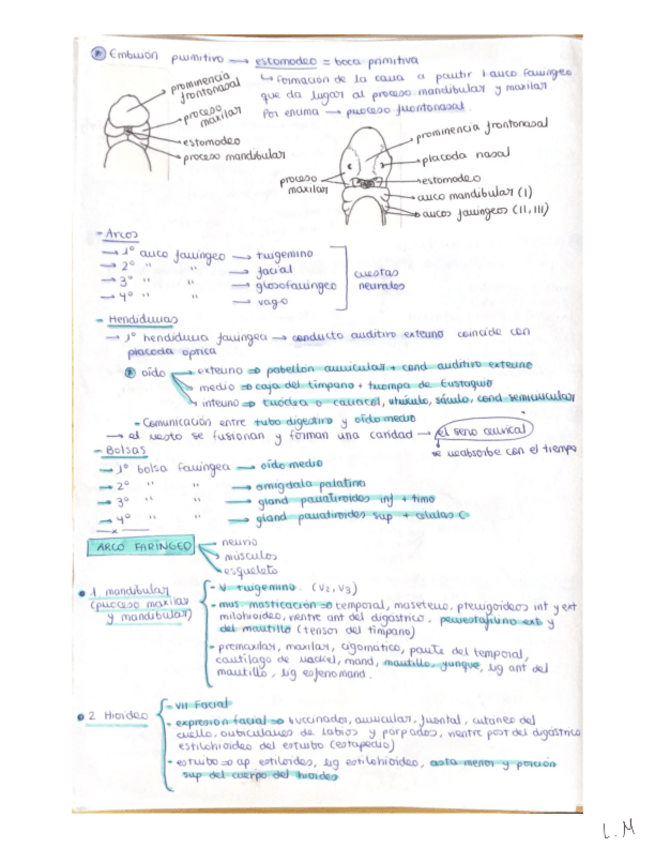 Embrión primitivo → estomodeo = boca primitiva
↳ formación de la cara a partir 1 arco faríngeo
que da lugar al proceso mandibular y maxilar
Por encima → proceso frontonasal.
prominencia
frontonasal
proceso
maxilar
estomodeo
proceso mandibular
prominencia frontonasal
placoda nasal
proceso
maxilar
estomodeo
arco mandibular (I)
arcos faríngeos (II, III)
- Arcos
→ 1º arco faríngeo → trigemino
→ 2º " " → facial
→ 3º " " → glosofaríngeo
→ 4º " " → vago
crestas
neurales
- Hendiduras
→ 1º hendidura faríngea → conducto auditivo externo coincide con
placoda optica
oído
→ externo ⇒ pabellón auricular + cond auditivo externo
medio ⇒ caja del tímpano + trompa de Eustaquio
interno ⇒ cóclea o caracol, utrículo, sáculo, cond semicircular
- Comunicación entre tubo digestivo y oído medio
→ el resto se fusionan y forman una cavidad → el seno cervical
se reabsorbe con el tiempo
- Bolsas
→ 1º bolsa faríngea → oído medio
→ 2º " " → amigdala palatina
→ 3º " " → gland paratiroides inf + timo
→ 4º " " → gland paratiroides sup + celulas C
ARCO FARÍNGEO
nervio
músculos
esqueleto
1 mandibular
(proceso maxilar
y mandibular)
- V trigemino. (V2, V3)
- mus masticación ⇒ temporal, masetero, pterigoideos int y ext
milohioideo, vientre ant del digastrico, periestafilino ext y
del martillo (tensor del tímpano)
- premaxilar, maxilar, cigomatico, parte del temporal,
cartílago de Meckel, mand, martillo, yunque, lig ant del
martillo, lig esfenomand.
2 Hioideo
- VII Facial
- expresion facial ⇒ buccinador, auricular, frontal, cutaneo del
cuello, orbiculares de labios y parpados, vientre post del digástrico
estilohioideo del estribo (estapedio)
- estribo ⇒ ap estiloides, lig estilohioideo, asta menor y porción
sup del cuerpo del hioides
L.M